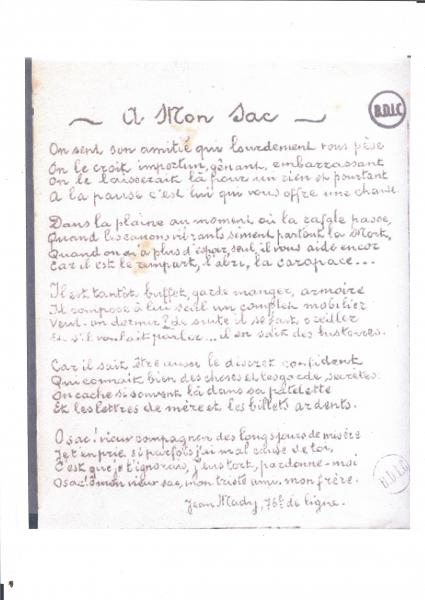 ~ A Mon Sac ~
B.D.I.C
On sent son amitié qui lourdement vous pèse
On le croit importun, gênant, embarrassant
On le laisserait là pour un rien et pourtant
A la pause c'est lui qui vous offre une chaise.
Dans la plaine au moment où la rafale passe,
Quand les canons vibrants sèment partout la Mort,
Quand on n'a plus d'espoir, seul il vous aide encor
Car il est le rempart, l'abri, la carapace...
Il est tantôt buffet, garde manger, armoire
Il compose à lui seul un complet mobilier
Veut-on dormir? de suite il se fait oreiller
Et s'il voulait parler... il en sait des histoires.
Car il sait être aussi le discret confident
Qui connaît bien des choses et les garde secrètes
On cache si souvent là dans sa pattelette
Et les lettres de mère et les billets ardents.
O sac! vieux compagnon des longs jours de misère
Je t'en prie si parfois j'ai mal causé de toi,
C'est que je t'ignorais, j'eus tort, pardonne-moi
O sac! ô mon vieux sac, mon triste ami, mon frère.
Jean Mady, 76e de ligne.
B.D.I.C